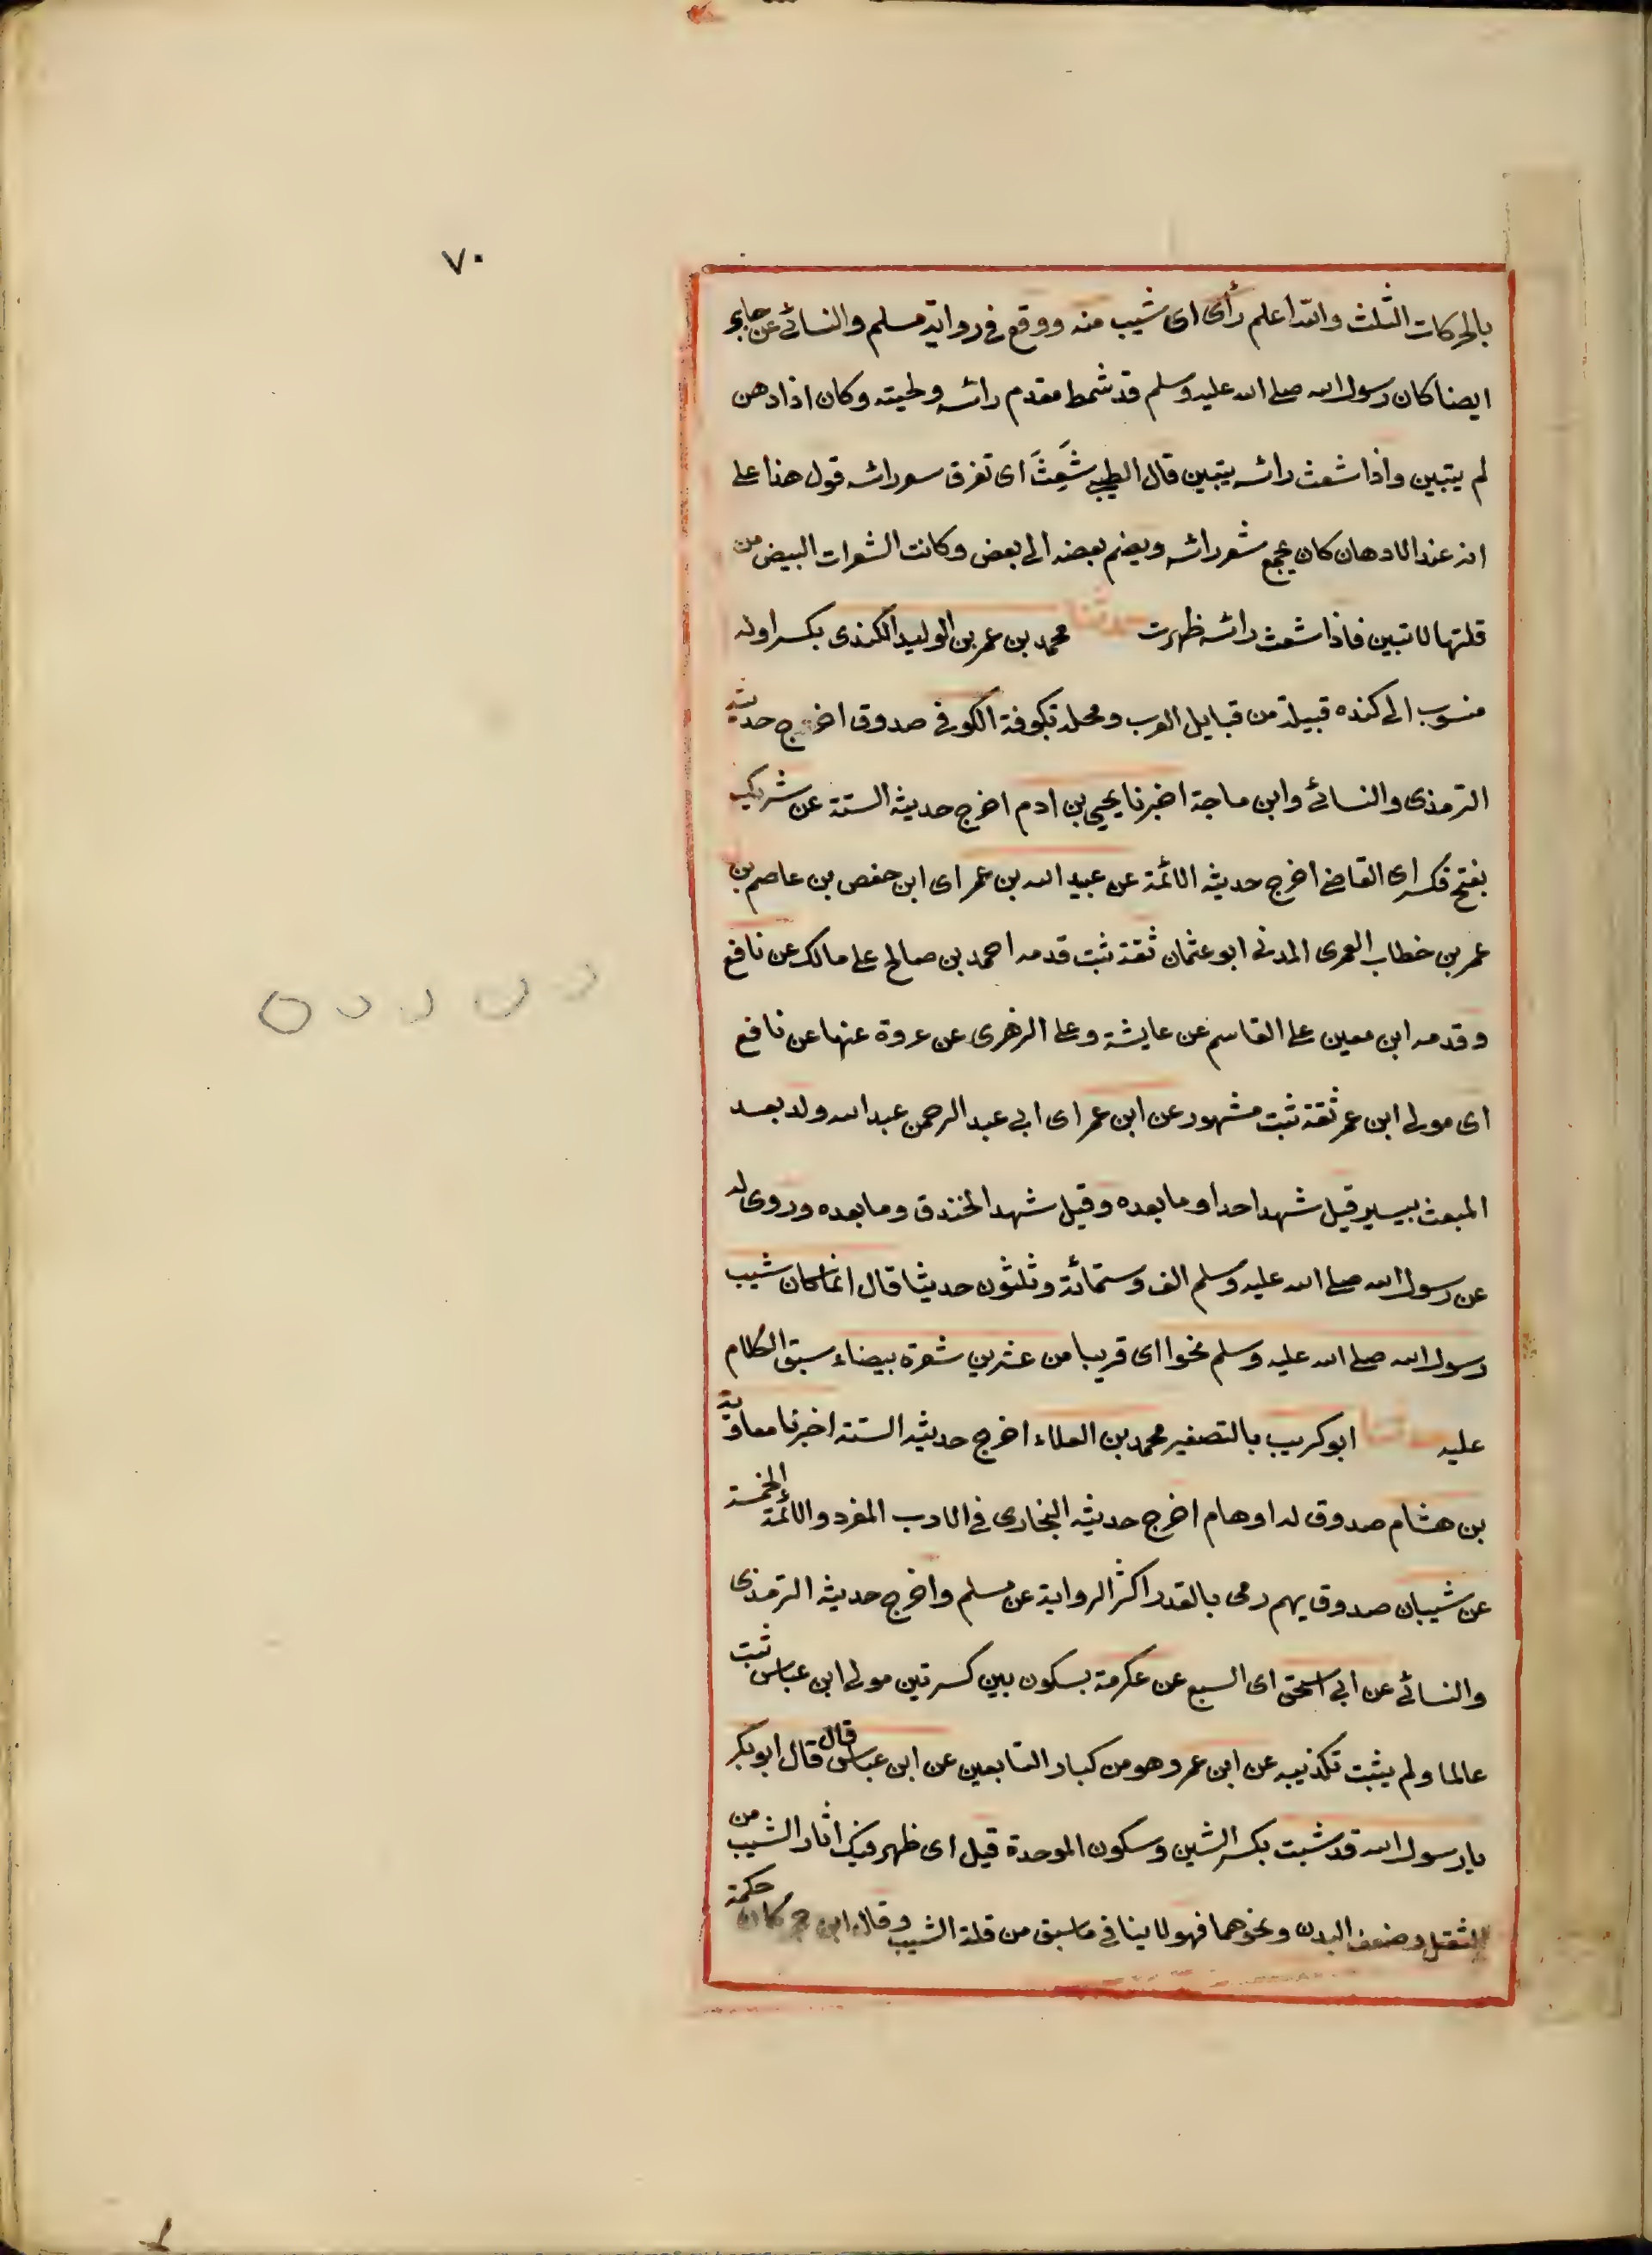 ٧٠
بالحركات الثلث والله اعلم رأى اى شيب منه ووقع فى رواية مسلم والنسائى عن جابر
ايضا كان رسول الله صلى الله عليه وسلم قد شمط مقدم رائسه ولحيته وكان اذا دهن
لم يتبين واذا شعث رائسه يتبين قال الطيبى شَعِثَ اى تفرق سعر رائسه قول هذا على
انه عند الادهان كان يجمع شعر رائسه ويضم بعضه الى بعض وكانت الشعرات البيض من
قلتها لا تبين فاذا شعث رائسه ظهرت حدثنا محمد بن عمر بن الوليد الكندى بكسر اوله
منسوب الى كنده قبيلة من قبايل العرب ومحلة بكوفة الكوفى صدوق اخرج حديثه
الترمذى والنسائى وابن ماجة اخبرنا يحيى بن ادم اخرج حديثه الستة عن شريك
بفتح فكسر اى القاضى اخرج حديثه الائمة عن عبيد الله بن عمر اى ابن حفص بن عاصم بن
عمر بن خطاب العمرى المدنى ابو عثمان ثقة ثبت قدمه احمد بن صالح على مالك عن نافع
وقدمه ابن معين على القاسم عن عايشة وعلى الزهرى عن عروة عنها عن نافع
اى مولى ابن عمر ثقة ثبت مشهور عن ابن عمر اى ابى عبد الرحمن عبد الله ولد بعد
المبعث بيسير قيل شهد احدا وما بعده وقيل شهد الخندق وما بعده وروى له
عن رسول الله صلى الله عليه وسلم الف وستمائة وثلثون حديثا قال انما كان شيب
رسول الله صلى الله عليه وسلم نحوا اى قريبا من عشرين شعرة بيضاء سبق الكلام
عليه حدثنا ابو كريب بالتصغير محمد بن العلاء اخرج حديثه الستة اخبرنا معاوية
بن هشام صدوق له اوهام اخرج حديثه البخارى فى الادب المفرد والائمة الخمسة
عن شيبان صدوق يهم رمى بالقدر اكثر الرواية عن مسلم واخرج حديثه الترمذى
والنسائى عن ابى اسحق اى السبع عن عكرمة بسكون بين كسرتين مولى ابن عباس ثبت
عالما ولم يثبت تكذيبه عن ابن عمر وهو من كبار التابعين عن ابن عباس قال قال ابو بكر
يا رسول الله قد شبت بكسر الشين وسكون الموحدة قيل اى ظهر فيك اثار الشيب من
الثقل وضعف البدن ونحوهما فهو لا ينافى ما سبق من قلة الشيب وقال ابن حجر كان حكمة